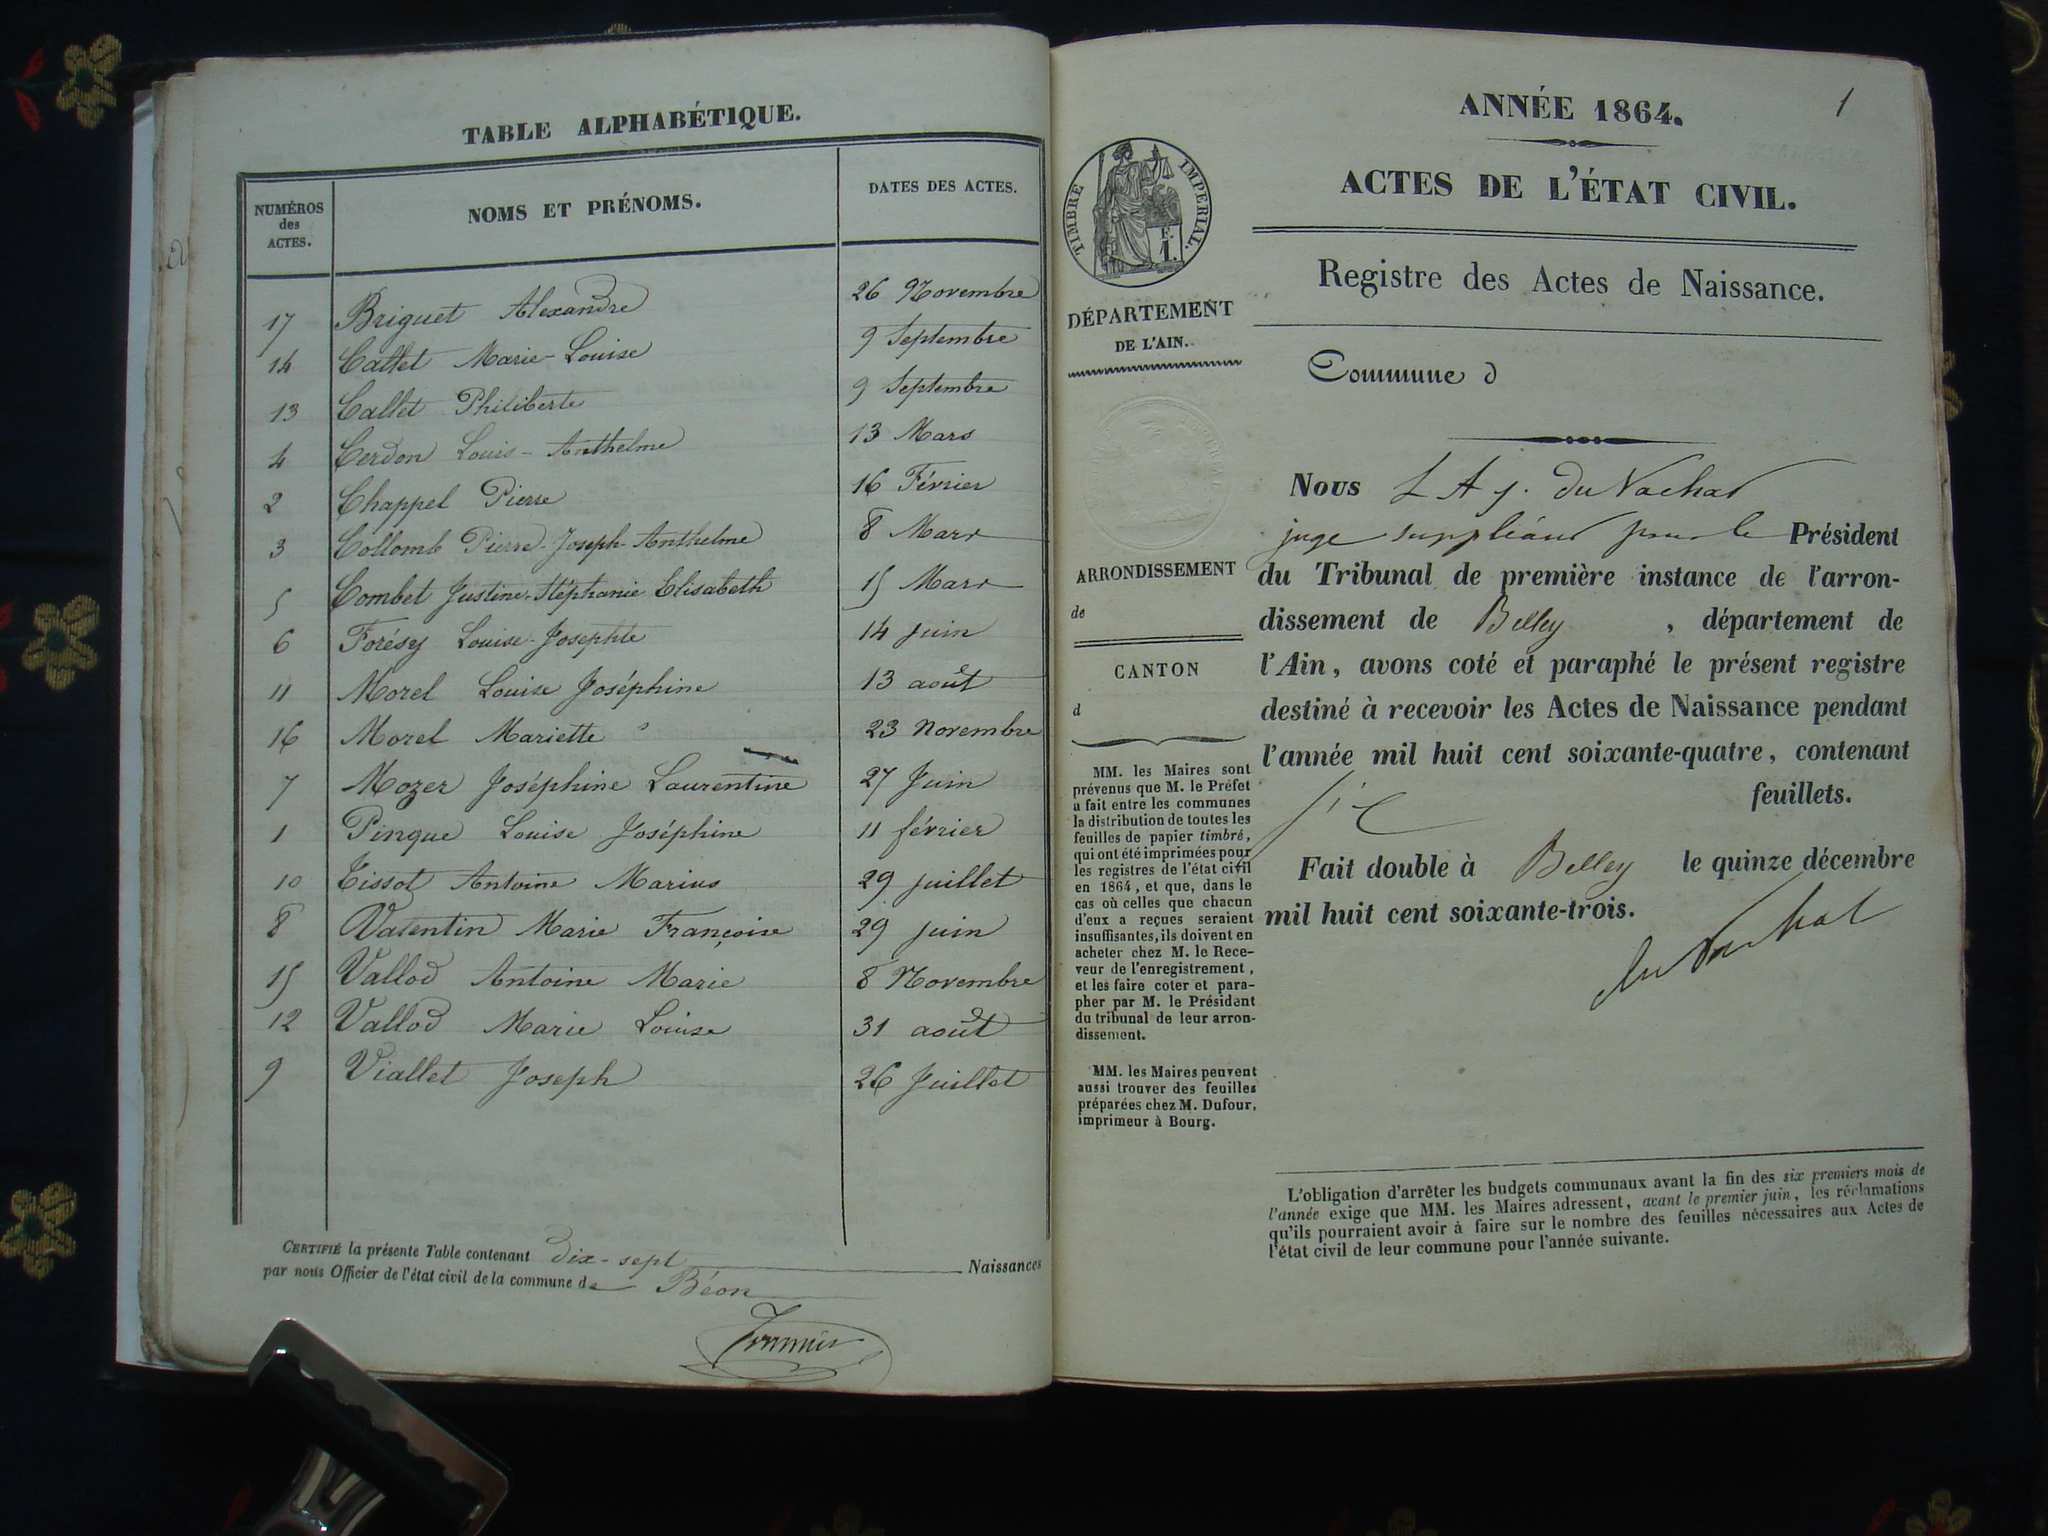 TABLE ALPHABÉTIQUE.
NUMÉROS des ACTES. NOMS ET PRÉNOMS. DATES DES ACTES.
17 Briguet Alexandre 26 Novembre
14 Callet Marie-Louise 9 Septembre
13 Callet Philiberte 9 Septembre
4 Cerdon Louis-Anthelme 13 Mars
2 Chappel Pierre 16 Février
3 Collomb Pierre-Joseph-Anthelme 8 Mars
5 Combet Justine-Stéphanie Elisabeth 15 Mars
6 Forésy Louise-Josephte 14 juin
11 Morel Louise Joséphine 13 août
16 Morel Mariette 23 novembre
7 Mozer Joséphine Laurentine 27 Juin
1 Pinque Louise Joséphine 11 février
10 Tissot Antoine Marius 29 juillet
8 Valentin Marie Françoise 29 juin
15 Vallod Antoine Marie 8 Novembre
12 Vallod Marie Louise 31 août
9 Viallet Joseph 26 Juillet
CERTIFIÉ la présente Table contenant dix-sept Naissances
par nous Officier de l'état civil de la commune de Béon
1
ANNÉE 1864.
ACTES DE L'ÉTAT CIVIL.
Registre des Actes de Naissance.
TIMBRE IMPÉRIAL.
F. 1.
DÉPARTEMENT
DE L'AIN.
ARRONDISSEMENT
de
CANTON
d
MM. les Maires sont
prévenus que M. le Préfet
a fait entre les communes
la distribution de toutes les
feuilles de papier timbré,
qui ont été imprimées pour
les registres de l'état civil
en 1864, et que, dans le
cas où celles que chacun
d'eux a reçues seraient
insuffisantes, ils doivent en
acheter chez M. le Rece-
veur de l'enregistrement,
et les faire coter et para-
pher par M. le Président
du tribunal de leur arron-
dissement.
MM. les Maires peuvent
aussi trouver des feuilles
préparées chez M. Dufour,
imprimeur à Bourg.
Commune d
Nous L A J. du Vachat
juge suppléant pour le Président
du Tribunal de première instance de l'arron-
dissement de Belley, département de
l'Ain, avons coté et paraphé le présent registre
destiné à recevoir les Actes de Naissance pendant
l'année mil huit cent soixante-quatre, contenant
six feuillets.
Fait double à Belley le quinze décembre
mil huit cent soixante-trois.
du Vachat
L'obligation d'arrêter les budgets communaux avant la fin des six premiers mois de
l'année exige que MM. les Maires adressent, avant le premier juin, les réclamations
qu'ils pourraient avoir à faire sur le nombre des feuilles nécessaires aux Actes de
l'état civil de leur commune pour l'année suivante.